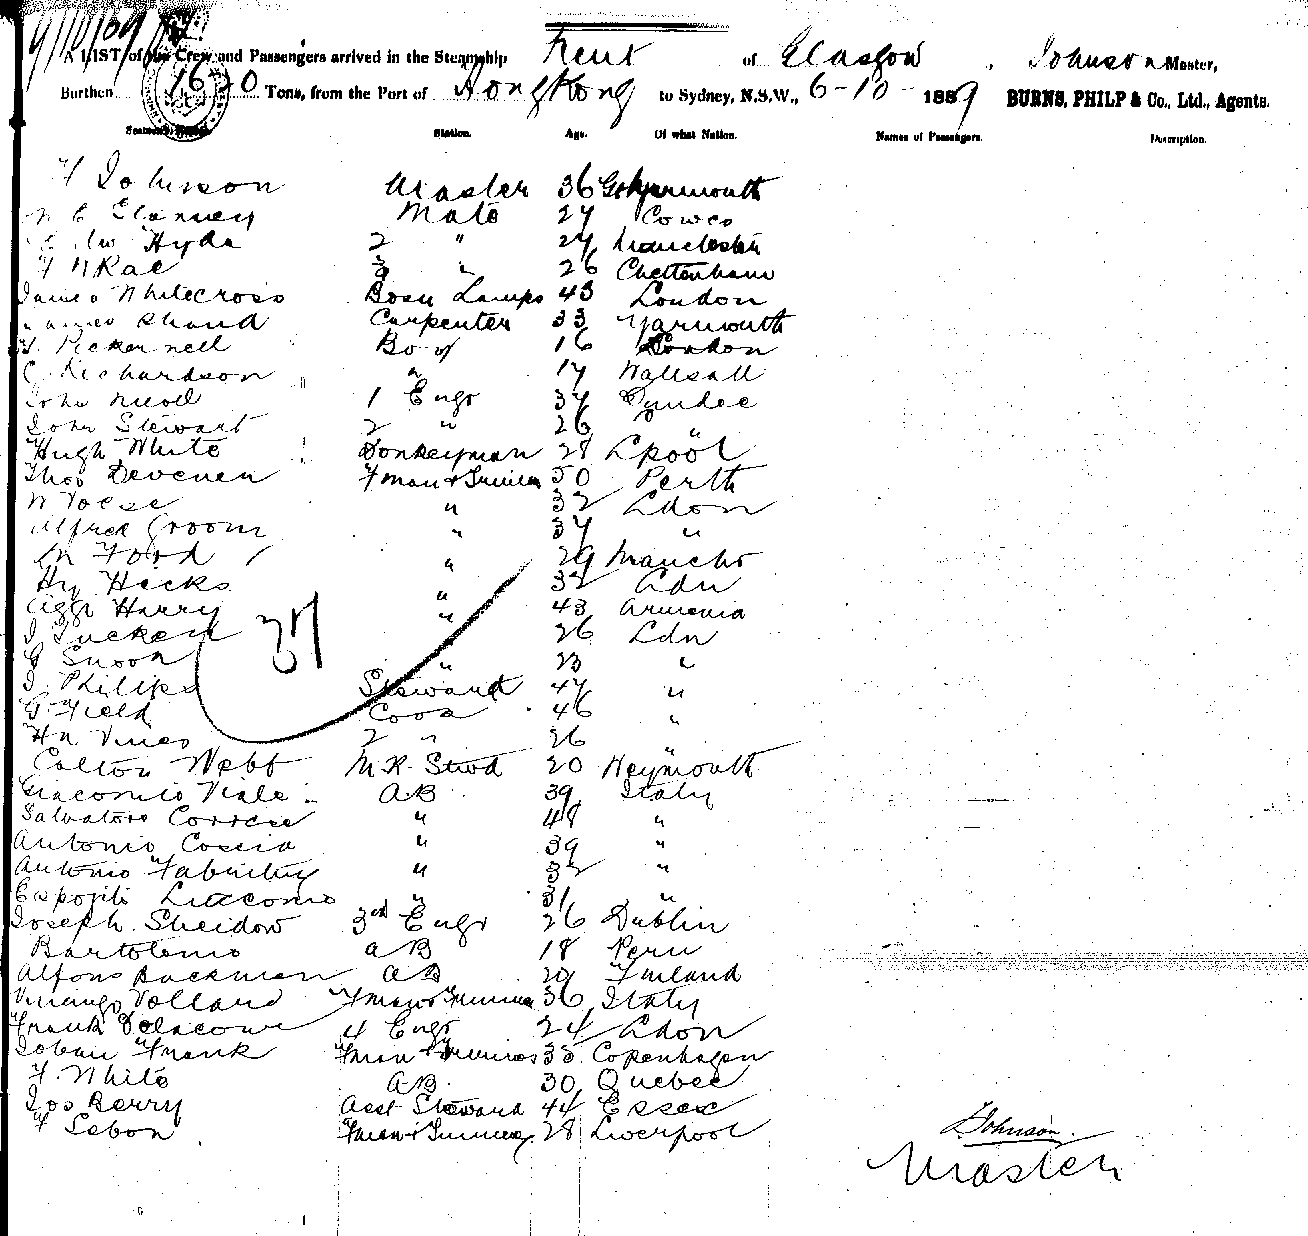 9/10/09
A LIST of the Crew and Passengers arrived in the Steamship Trent of Glasgow, Johnson Master,
Burthen 1620 Tons, from the Port of HongKong to Sydney, N.S.W., 6-10-1889 BURNS, PHILP & Co., Ltd., Agents.
Seamen's Names. Station. Age. Of what Nation. Names of Passengers. Description.
F Johnson Master 36 Gt Yarmouth
Mate 27 Cowes
Hyde 2 " 27 Manchester
F McRae 3 " 26 Cheltenham
James Whitecross Bosn Lamps 43 London
James Shand Carpenter 33 Yarmouth
Pickernell Boy 16 London
C Richardson " 17 Wallsall
John Nicoll 1 Engr 37 Dundee
John Stewart 2 " 26 "
Hugh White Donkeyman 28 Lpool
Thos Devenen Fman & Trimmer 50 Perth
W " 32 Ldon
Alfred Groom " 37 "
M Ford " 29 Manchr
Hy Hecks " 32 Ldn
Harry " 43 Armenia
J Tucker " 26 Ldn
G " 23 "
J Philips Steward 47 "
G Field Cook 46 "
Hn Vines 2 " 26 "
37
Colton Webb M.R. Stwd 20 Weymouth
Giacomio Viale AB 39 Italy
Salvatore Correse " 48 "
Antonio Coscia " 39 "
Antonio " 32 "
Esposito Liacomo " 31 "
Joseph Sheidow 3rd Engr 26 Dublin
Bartolomio AB 18 Peru
Alfons Backman AB 29 Finland
Volland Fman & Trimmer 36 Italy
Frank Delacour 4 Engr 24 Ldon
Johan Frank Fman & Trimmer 38 Copenhagen
F. White AB 30 Quebec
Jos Berry Asst Steward 44 Essex
F Lebon Fman & Trimmer 28 Liverpool
Johnson
Master